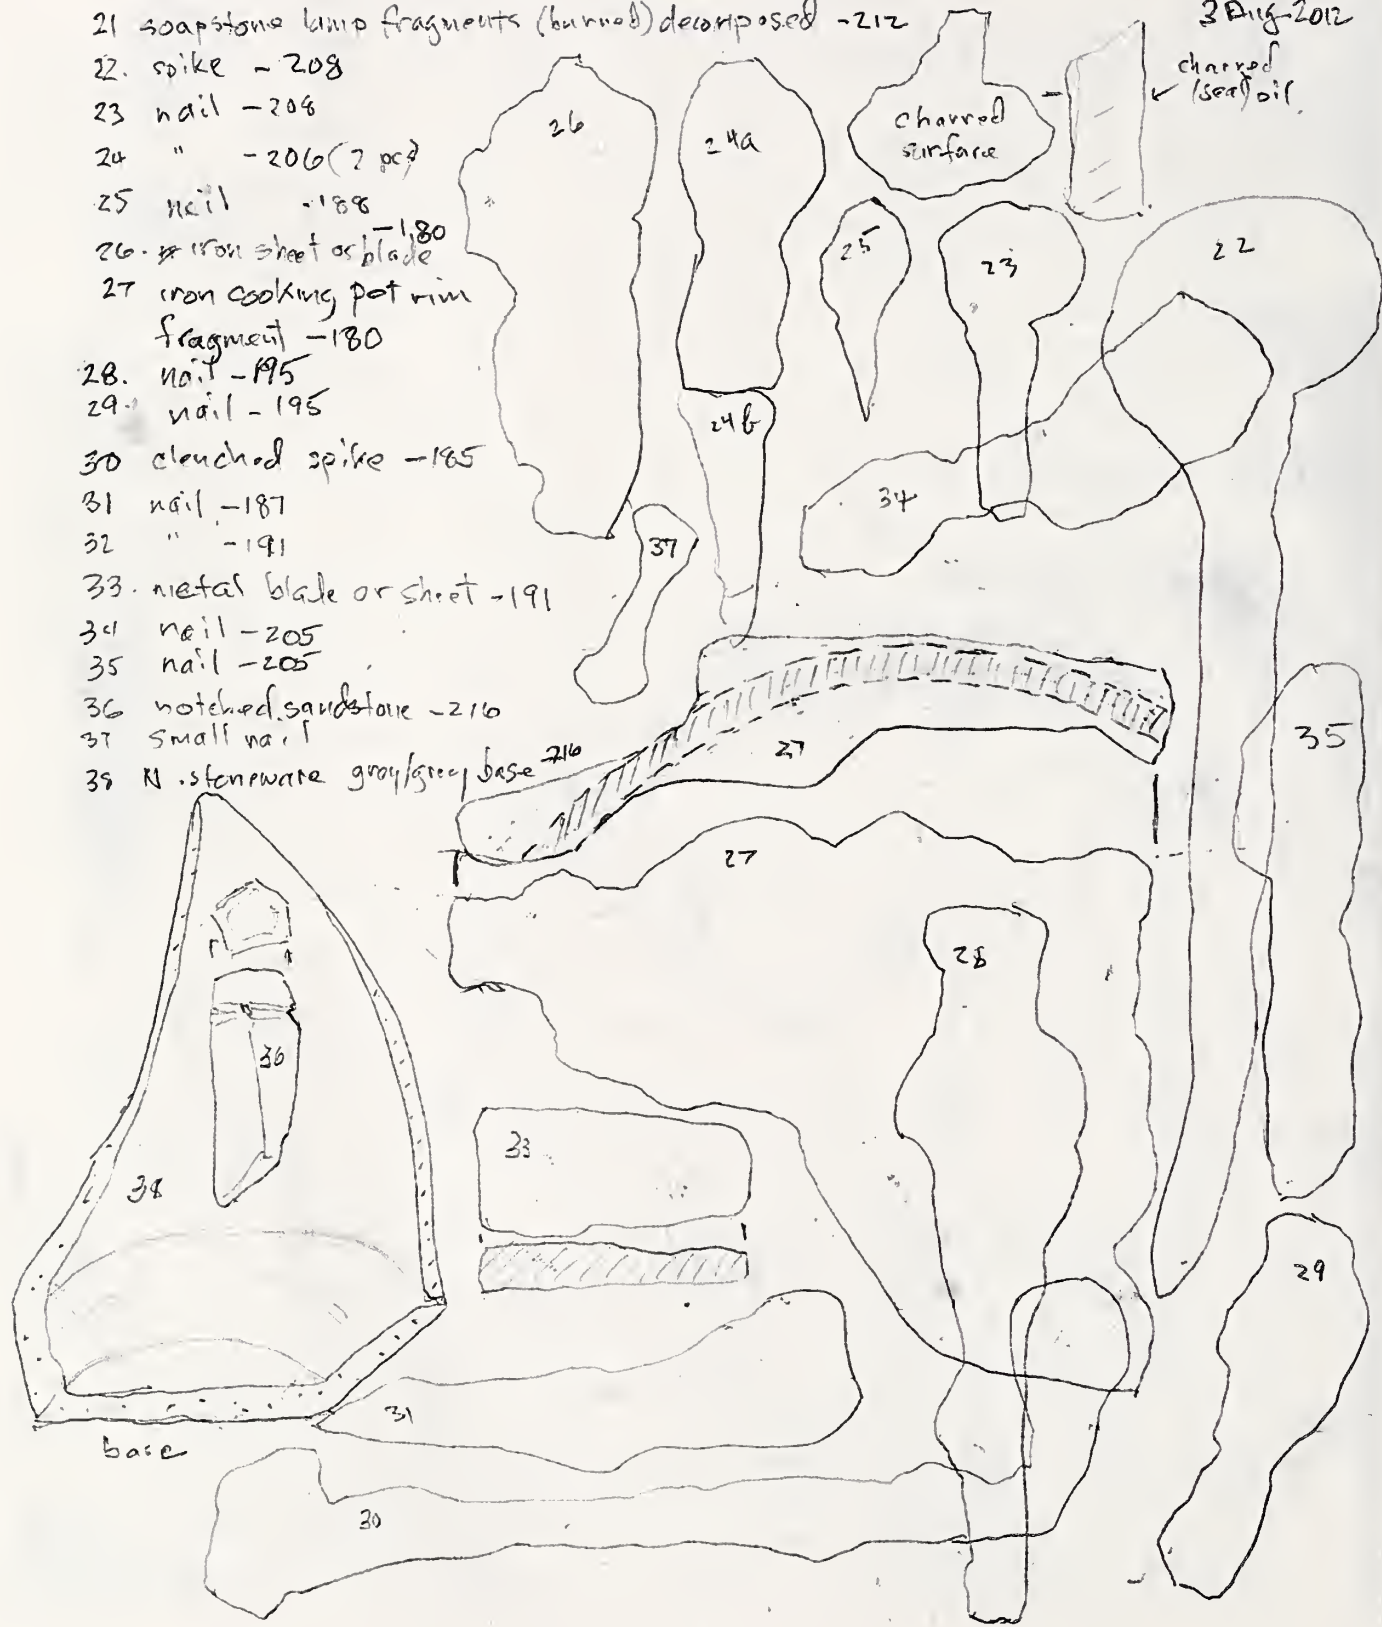 21 soapstone lamp fragments (burned) decomposed -212
3 Aug 2012
22. spike - 208
23 nail -208
24 " -206 (2 pcs)
25 nail -188
26. iron sheet or blade -180
27 iron cooking pot rim
fragment -180
28. nail -195
29. nail - 195
30 clenched spike -185
31 nail -187
32 " -191
33. metal blade or sheet -191
34 nail -205
35 nail -205
36 notched sandstone -216
37 small nail
38 N. stoneware gray/grey base -216
charred
surface
charred
(seal) oil
26
24a
25
23
22
24b
34
37
35
27
27
28
36
33
38
29
31
base
30